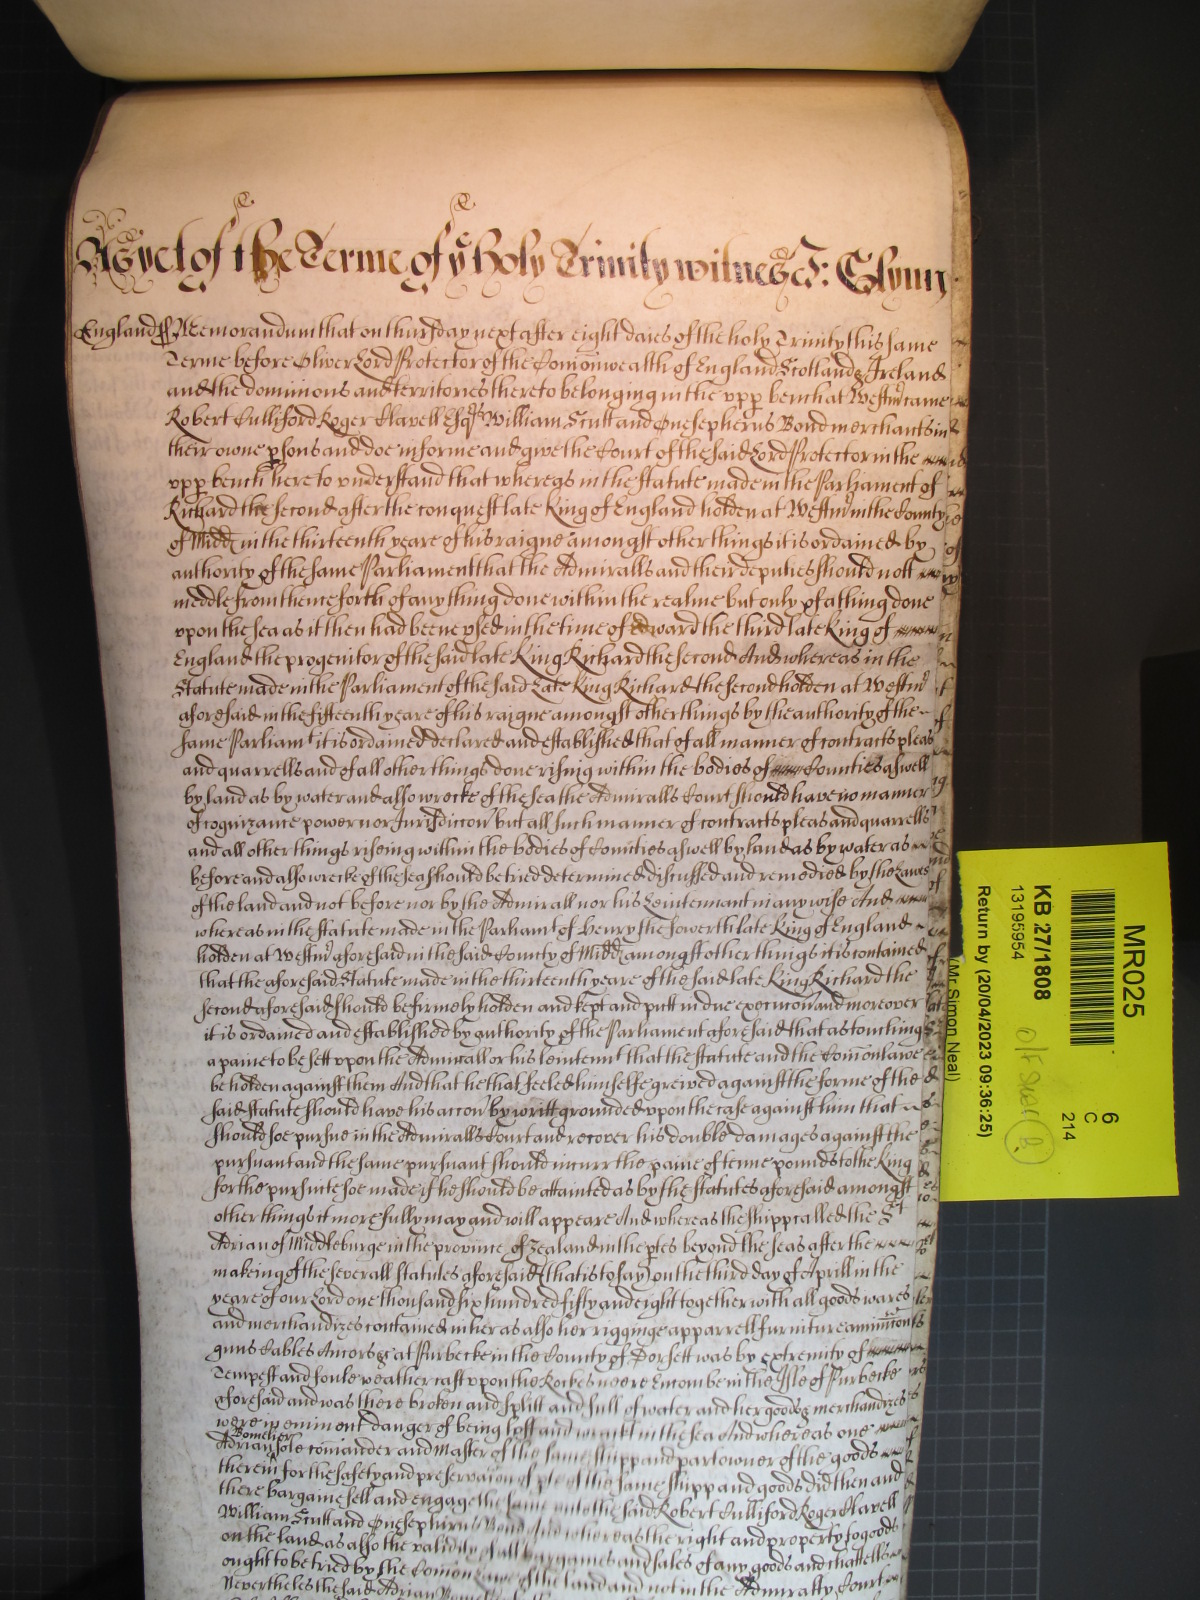 As yet of the Terme of ye Holy Trinity witnes J: Glynn
England ss Memorandum that on thursday next after eight daies of the holy Trinity this same
Terme before Oliver Lord Protector of the Comonwealth of England Scotland & Ireland
and the dominions and territories thereto belonging in the upp bench at Westmr came
Robert Culliford Roger Clavell Esqrs William Scutt and Onesepherus Bond merchants in
their owne psons and doe informe and give the Court of the said Lord Protector in the
upp bench here to understand that whereas in the statute made in the Parliament of
Richard the second after the conquest late King of England holden at Westmr in the County
of Midd in the thirteenth yeare of his raigne amongst other things it is ordained by
authority of the same Parliament that the Admiralls and their deputies should nott
meddle from thenceforth of any thing done within the realme but only of a thing done
upon the sea as it then had beene used in the time of Edward the third late King of
England the progenitor of the said late King Richard the second And whereas in the
Statute made in the Parliament of the said Late King Richard the second holden at Westmr
aforesaid in the fifteenth yeare of his raigne amongst other things by the authority of the
same Parliamt it is ordained declared and established that of all manner of contracts pleas
and quarrells and of all other things done rising within the bodies of Counties aswell
by land as by water and also wrecke of the sea the Admiralls Court should have no manner
of cognizance power nor Jurisdiccon but all such manner of contracts pleas and quarrells
and all other things riseing within the bodies of Counties aswell by land as by water as
before and also wrecke of the sea should be tried determined discussed and remedied by the Lawes
of the land and not before nor by the Admirall nor his Leiutennant in any wise And
whereas in the statute made in the Parliamt of Henry the fowerth late King of England
holden at Westmr aforesaid in the said County of Midd amongst other things it is contained
that the aforesaid Statute made in the thirteenth yeare of the said late King Richard the
second aforesaid should be firmely holden and kept and putt in due execucion and moreover
it is ordained and established by authority of the Parliament aforesaid that as touching
a paine to be sett upon the Admirall or his leiutennt that the statute and the Comon lawe
be holden against them And that he that feeled himselfe greived against the forme of the
said statute should have his accon by writt grounded upon the case against him that
should soe pursue in the Admiralls Court and recover his double damages against the
pursuant and the same pursuant should incurr the paine of tenne pounds to the King
for the pursuite soe made if he should be attainted as by the statutes aforesaid amongst
other things it more fully may and will appeare And whereas the shipp called the St
Adrian of Middleburge in the province of Zealand in the ptes beyond the seas after the
makeing of the severall statutes aforesaid (that is to say) on the third day of Aprill in the
yeare of our Lord one thousand six hundred fifty and eight together with all goods wares
and merchandizes contained in her as also her rigginge apparrell furniture amunicons
guns Cables Ancors &c at Purbecke in the County of Dorsett was by extremity of
Tempest and foule weather cast upon the Rockes neere Encombe in the Isle of Purbecke
aforesaid and was there broken and splitt and full of water and her goods & merchandizes
were in eminent danger of being lost and wrackt in the sea And whereas one
Adrian Bomelier sole comander and Master of the same shipp and part owner of the goods
therein for the safety and preservacon of pte of the same shipp and goods did then and
there bargaine sell and engage the same unto the said Robert Culliford Roger Clavell
William Scutt and Onesepherus Bond And whereas the right and property to goods
on the land as also the validity of all bargaines and sales of any goods and chattells
ought to be tried by the Comon Lawe of the land and not in the Admiralty Court
Nevertheles the said Adrian
MR025
6
C
214
KB 27/1808
13195954
Return by (20/04/2023 09:36:25)
(Mr Simon Neal)